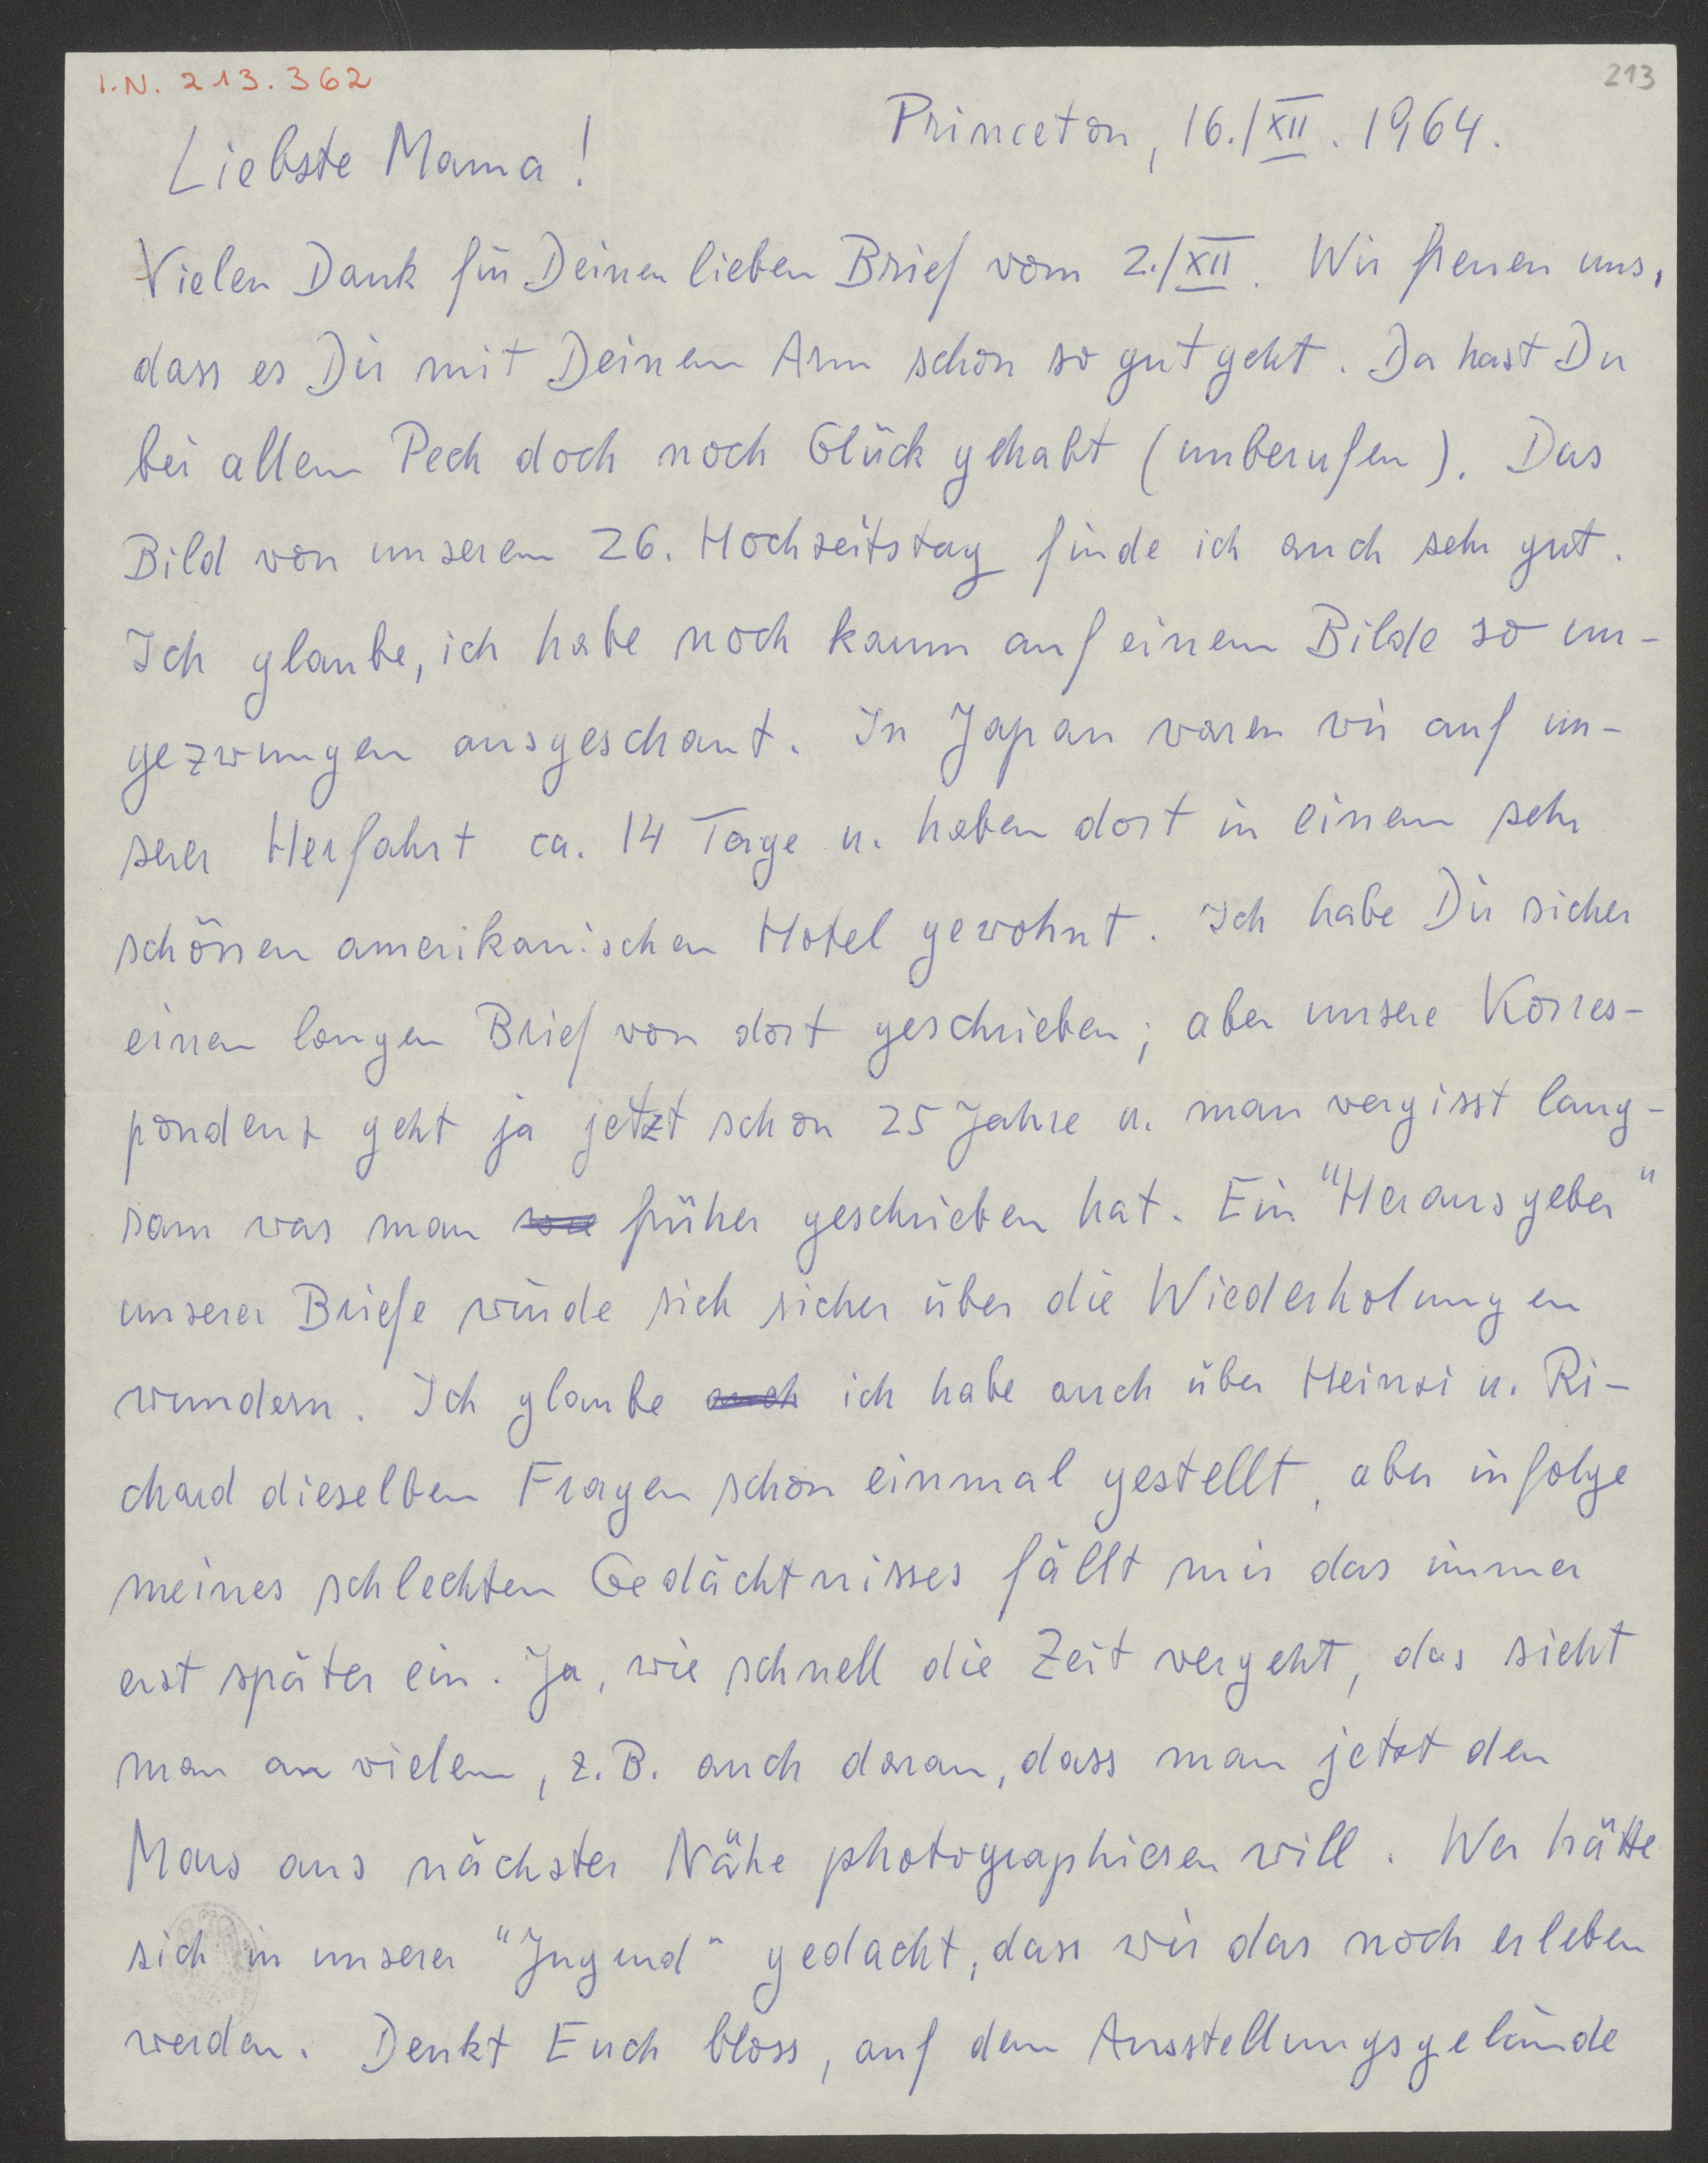 I.N. 213.362
213
Princeton, 16./XII. 1964.
Liebste Mama!
Vielen Dank für Deinen lieben Brief vom 2./XII. Wir freuen uns,
dass es Dir mit Deinem Arm schon so gut geht. Da hast Du
bei allem Pech doch noch Glück gehabt (unberufen). Das
Bild von unserem 26. Hochzeitstag finde ich auch sehr gut.
Ich glaube, ich habe noch kaum auf einem Bilde so un-
gezwungen ausgeschaut. In Japan waren wir auf un-
serer Herfahrt ca. 14 Tage u. haben dort in einem sehr
schönen amerikanischen Hotel gewohnt. Ich habe Dir sicher
einen langen Brief von dort geschrieben; aber unsere Korres-
pondenz geht ja jetzt schon 25 Jahre u. man vergisst lang-
sam was man wie früher geschrieben hat. Ein "Herausgeber"
unserer Briefe würde sich sicher über die Wiederholungen
wundern. Ich glaube auch ich habe auch über Heinzi u. Ri-
chard dieselben Fragen schon einmal gestellt, aber infolge
meines schlechten Gedächtnisses fällt mir das immer
erst später ein. Ja, wie schnell die Zeit vergeht, das sieht
man an vielem, z.B. auch daran, dass man jetzt den
Mars aus nächster Nähe photographieren will. Wer hätte
sich in unserer "Jugend" gedacht, dass wir das noch erleben
werden. Denkt Euch bloss, auf dem Ausstellungsgelände